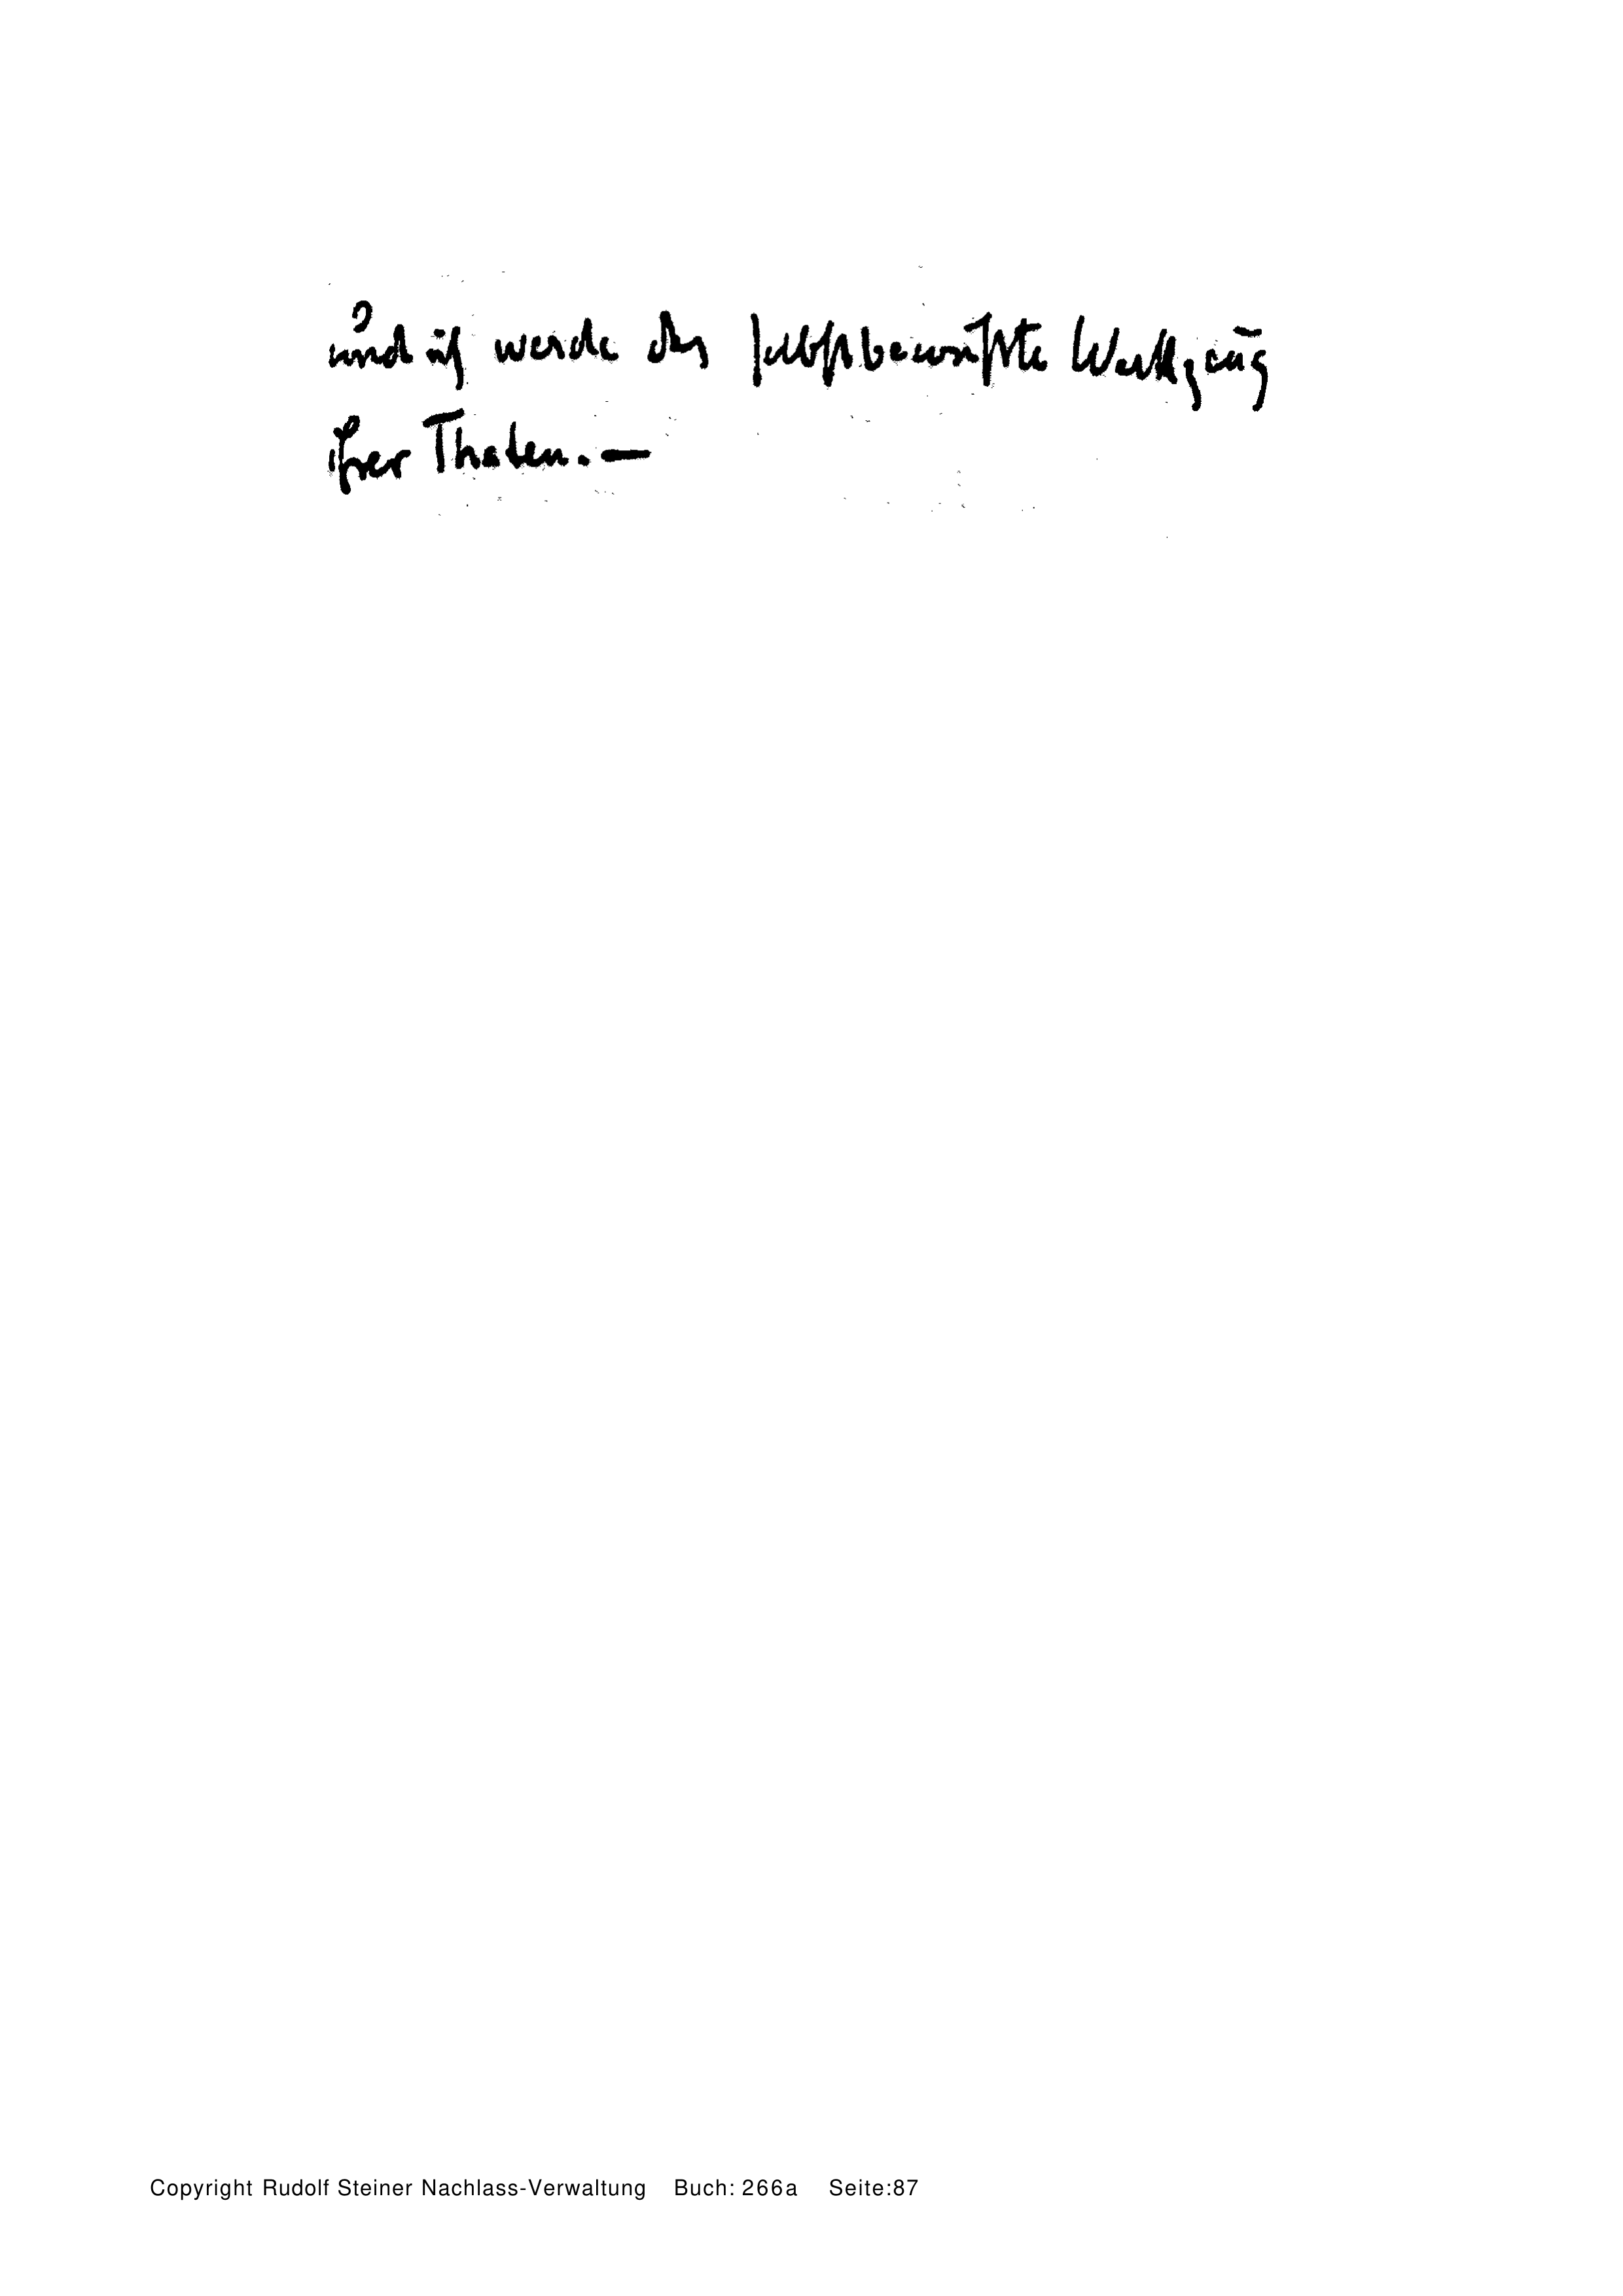 und ich werde das selbstbewußte Werkzeug
ihrer Thaten. —
Copyright Rudolf Steiner Nachlass-Verwaltung Buch: 266a Seite:87